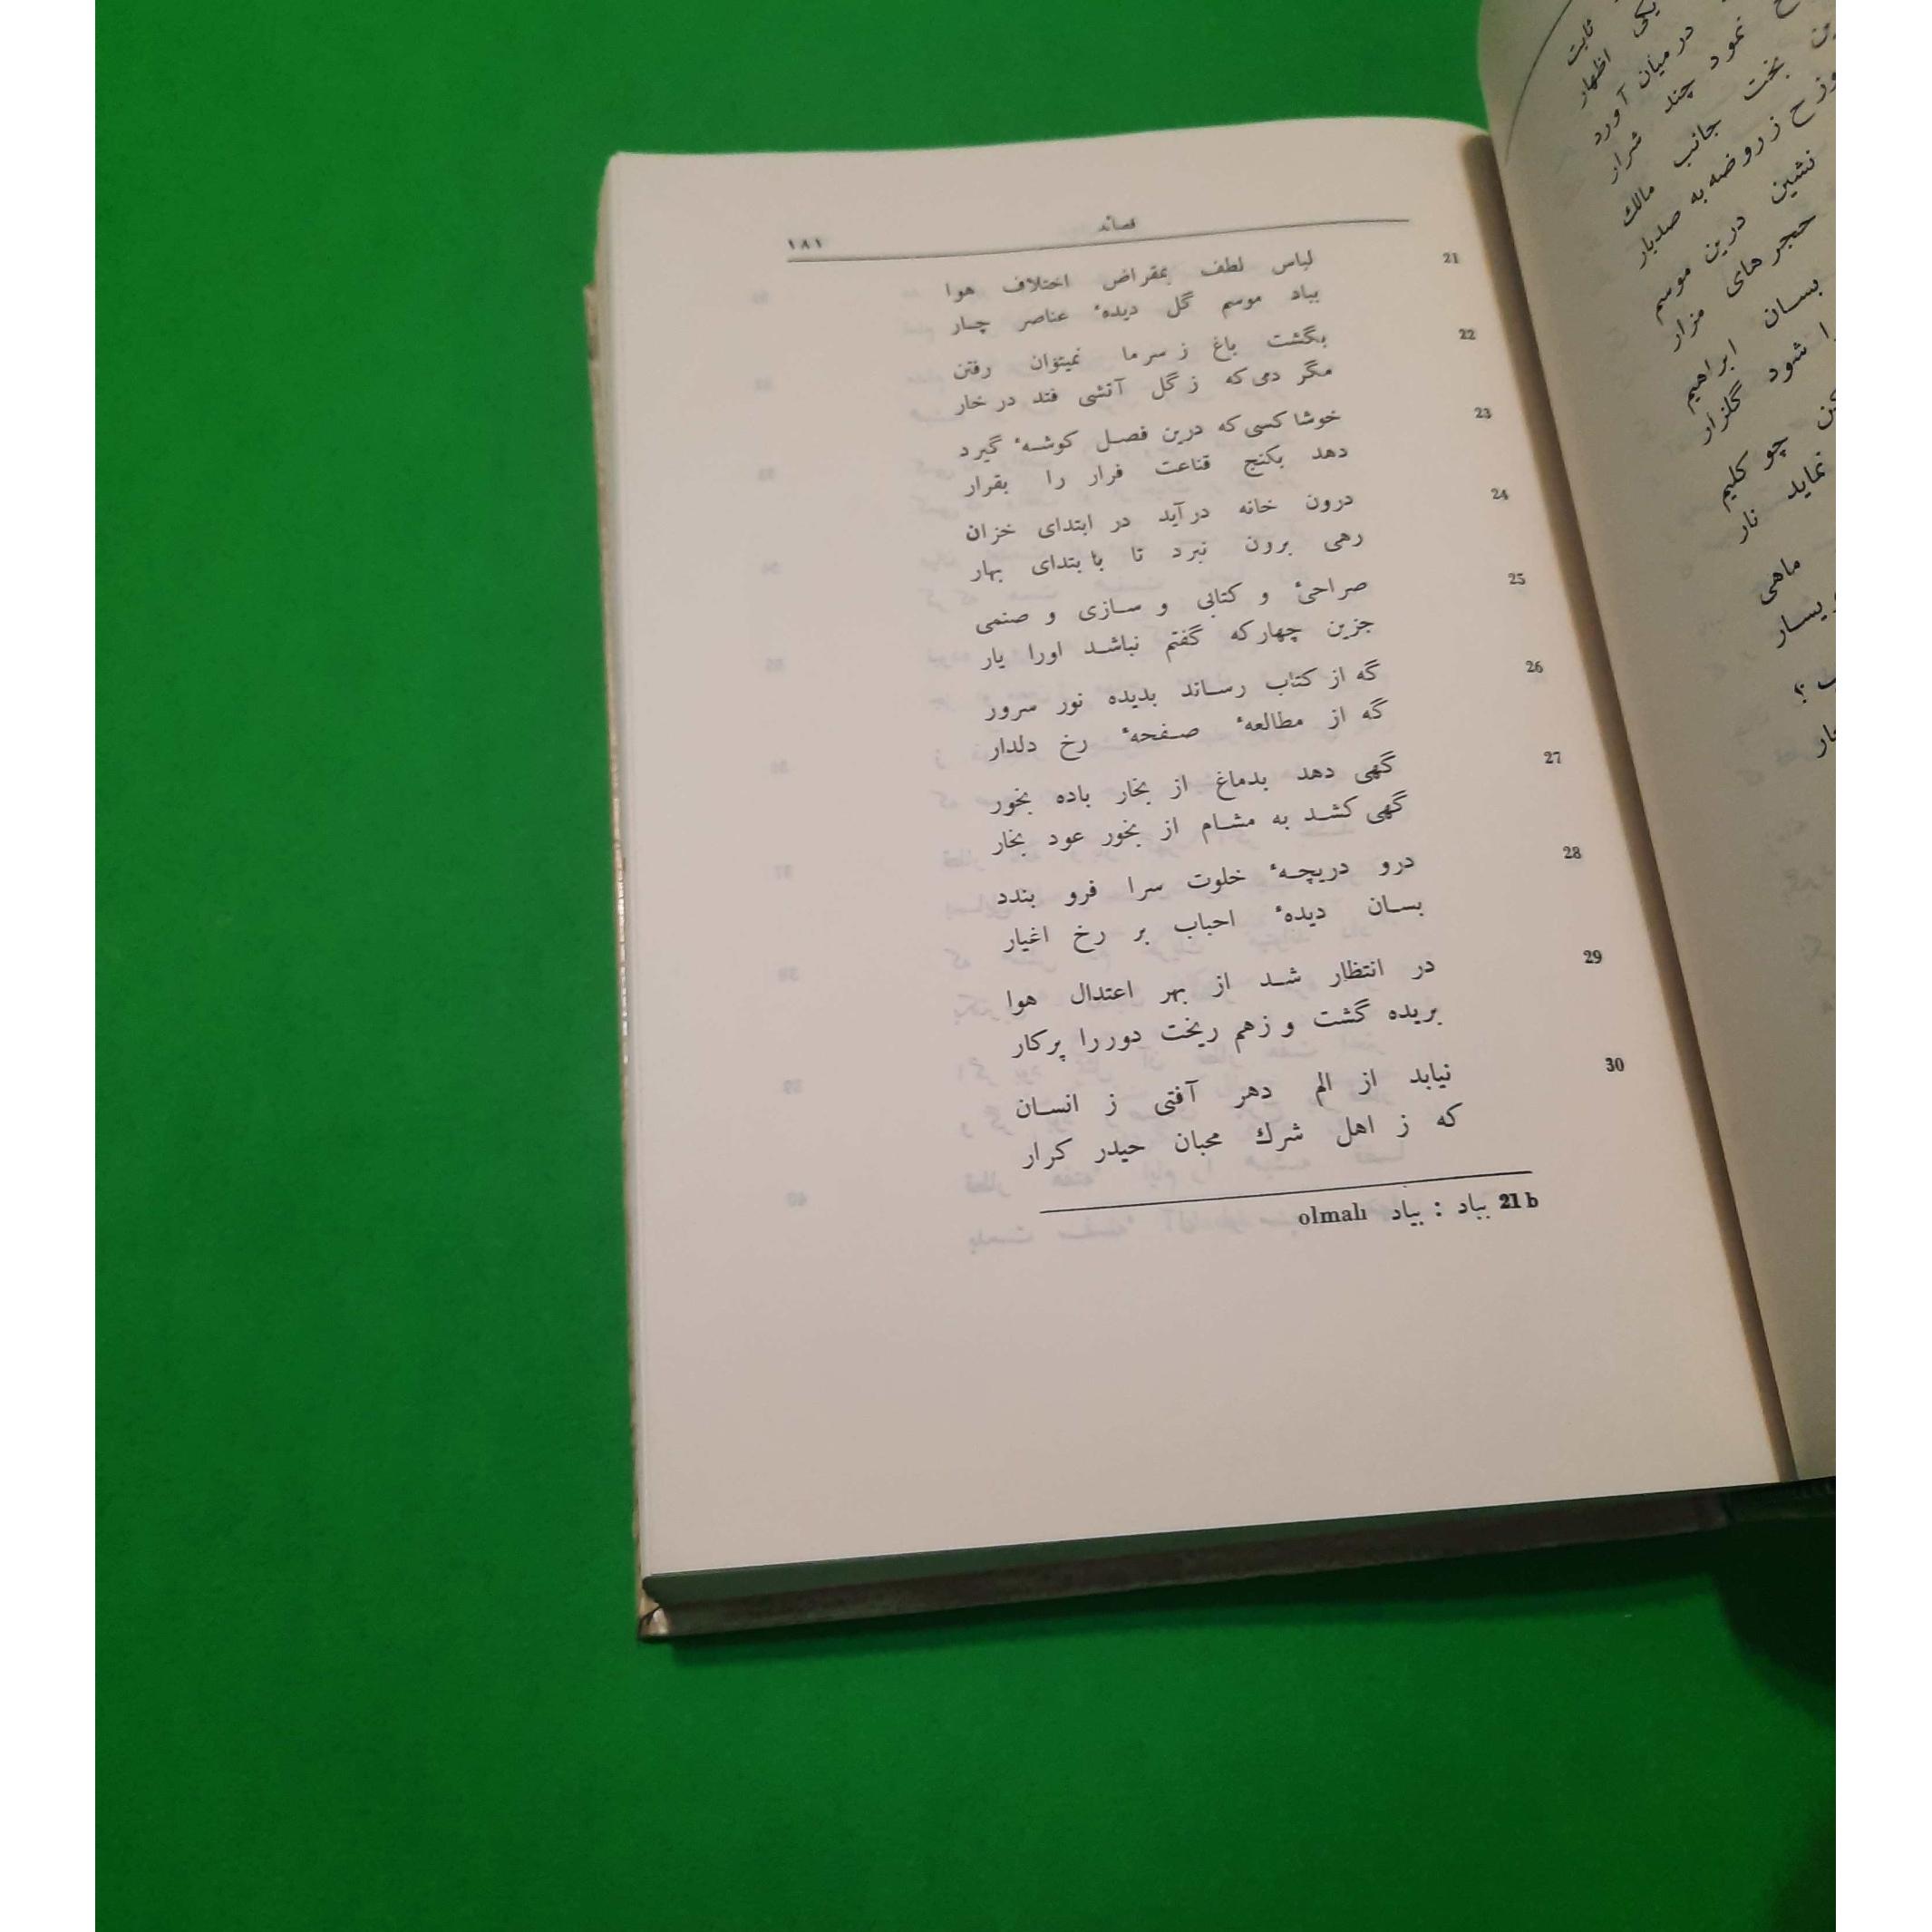 قصائد
١٨١
21
لباس لطف بمقراض اختلاف هوا
بباد موسم گل دیدهٔ عناصر چار
22
بگشت باغ ز سرما نمیتوان رفتن
مگر دمی که ز گل آتشی فتد در خار
23
خوشا کسی که درین فصل کوشهٔ گیرد
دهد بکنج قناعت فرار را بقرار
24
درون خانه در آید در ابتدای خزان
رهی برون نبرد تا با بتدای بهار
25
صراحیٔ و کتابی و سازی و صنمی
جزین چهار که گفتم نباشد اورا یار
26
گه از کتاب رساند بدیده نور سرور
گه از مطالعهٔ صفحهٔ رخ دلدار
27
گهی دهد بدماغ از بخار باده بخور
گهی کشد به مشام از بخور عود بخار
28
درو دریچهٔ خلوت سرا فرو بندد
بسان دیدهٔ احباب بر رخ اغیار
29
در انتظار شد از بهر اعتدال هوا
بریده گشت و زهم ریخت دوررا پرکار
30
نیابد از الم دهر آفتی ز انسان
که ز اهل شرك محبان حیدر کرار
21b بباد : بیاد olmalı
ثابت
یکی اظهار
در میان آورد
نمود چند شرار
بخت جانب مالك
ز روضه به صدبار
نشین درین موسم
حجرهای مزار
بسان ابراهیم
شود گلزار
چو کلیم
نماید نار
ماهی
یسار